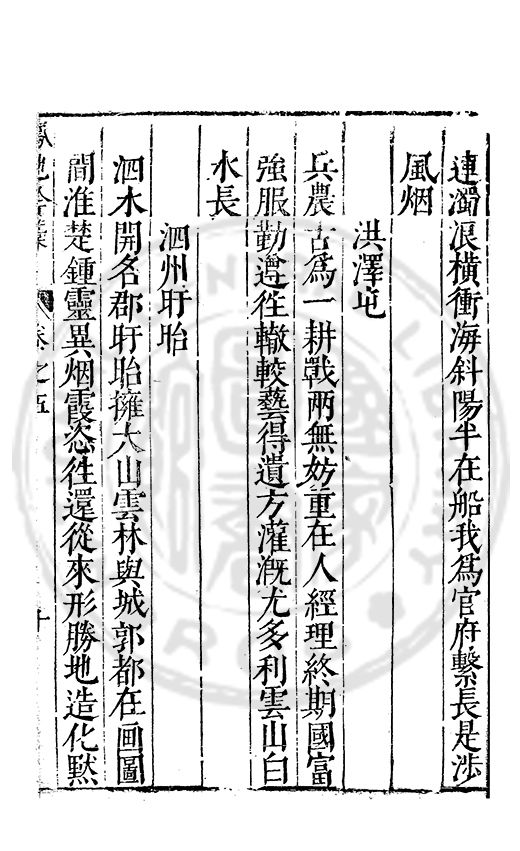 連濁浪橫衝海斜陽半在船我爲官府繫長是涉
風烟
洪澤屯
兵農古爲一耕戰兩無妨重在人經理終期國富
強服勤遵徃轍較藝得遺方灌溉尤多利雲山白
水長
泗州盱眙
泗水開名郡盱眙擁大山雲林與城郭都在畫圖
間淮楚鍾靈異烟霞恣徃還從來形勝地造化黙
卷之五